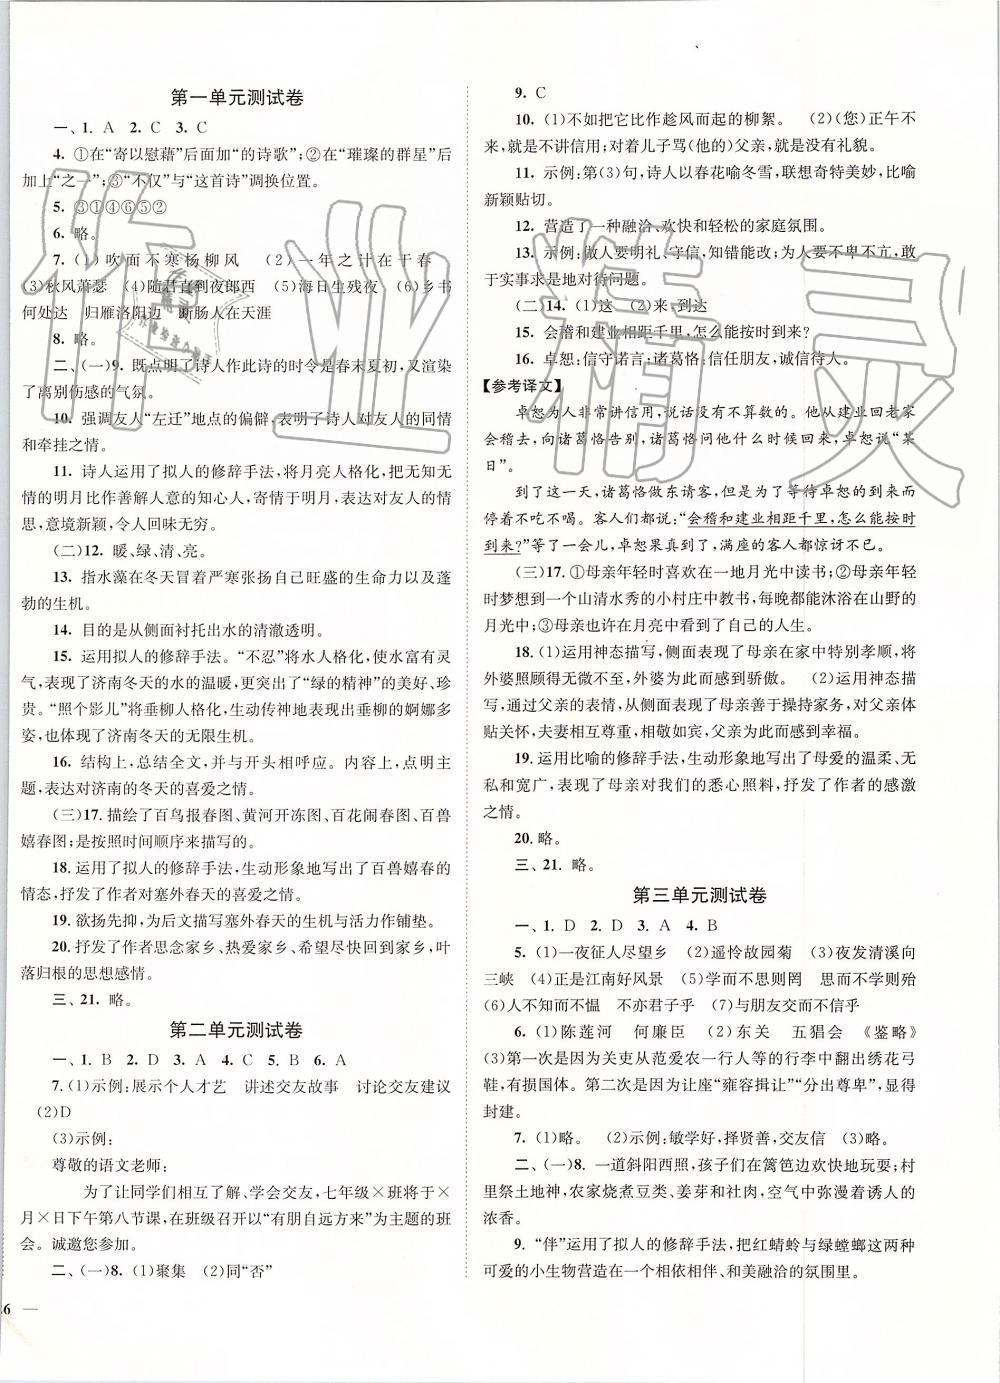 第一单元测试卷
一、1. A 2. C 3. C
4. ①在“寄以慰藉”后面加“的诗歌”；②在“璀璨的群星”后
加上“之一”；③“不仅”与“这首诗”调换位置。
5. ③①④⑥⑤②
6. 略。
7. (1)吹面不寒杨柳风 (2)一年之计在于春
(3)秋风萧瑟 (4)随君直到夜郎西 (5)海日生残夜 (6)乡书
何处达 归雁洛阳边 断肠人在天涯
8. 略。
二、(一)9. 既点明了诗人作此诗的时令是春末夏初，又渲染
了离别伤感的气氛。
10. 强调友人“左迁”地点的偏僻，表明了诗人对友人的同情
和牵挂之情。
11. 诗人运用了拟人的修辞手法，将月亮人格化，把无知无
情的明月比作善解人意的知心人，寄情于明月，表达对友人的情
思，意境新颖，令人回味无穷。
(二)12. 暖、绿、清、亮。
13. 指水藻在冬天冒着严寒张扬自己旺盛的生命力以及蓬
勃的生机。
14. 目的是从侧面衬托出水的清澈透明。
15. 运用拟人的修辞手法。“不忍”将水人格化，使水富有灵
气，表现了济南冬天的水的温暖，更突出了“绿的精神”的美好、珍
贵。“照个影儿”将垂柳人格化，生动传神地表现了垂柳的婀娜多
姿，也体现了济南冬天的无限生机。
16. 结构上，总结全文，并与开头相呼应。内容上，点明主
题，表达对济南的冬天的喜爱之情。
(三)17. 描绘了百鸟报春图、黄河开冻图、百花闹春图、百兽
嬉春图；是按照时间顺序来描写的。
18. 运用了拟人的修辞手法，生动形象地写出了百兽嬉春的
情态，抒发了作者对塞外春天的喜爱之情。
19. 欲扬先抑，为后文描写塞外春天的生机与活力作铺垫。
20. 抒发了作者思念家乡、热爱家乡、希望尽快回到家乡，叶
落归根的思想感情。
三、21. 略。
第二单元测试卷
一、1. B 2. D 3. A 4. C 5. B 6. A
7. (1)示例：展示个人才艺 讲述交友故事 讨论交友建议
(2)D
(3)示例：
尊敬的语文老师：
为了让同学们相互了解、学会交友，七年级×班将于×
月×日下午第八节课，在班级召开以“有朋自远方来”为主题的班
会。诚邀您参加。
二、(一)8. (1)聚集 (2)同“否”
9. C
10. (1)不如把它比作趁风而起的柳絮。 (2)(您)正午不
来，就是不讲信用；对着儿子骂(他的)父亲，就是没有礼貌。
11. 示例：第(3)句，诗人以春花喻冬雪，联想奇特美妙，比喻
新颖贴切。
12. 营造了一种融洽、欢快和轻松的家庭氛围。
13. 示例：做人要明礼、守信，知错能改；为人要不卑不亢，敢
于实事求是地对待问题。
(二)14. (1)这 (2)来，到达
15. 会稽和建业相距千里，怎么能按时到来？
16. 卓恕：信守诺言；诸葛恪：信任朋友，诚信待人。
【参考译文】
卓恕为人非常讲信用，说话没有不算数的。他从建业回老家
会稽去，向诸葛恪告别，诸葛恪问他什么时候回来，卓恕说“某
日”。
到了这一天，诸葛恪做东请客，但是为了等待卓恕的到来而
停着不吃不喝。客人们都说：“会稽和建业相距千里，怎么能按时
到来？”等了一会儿，卓恕果真到了，满座的客人都惊讶不已。
(三)17. ①母亲年轻时喜欢在一地月光中读书；②母亲年轻
时梦想到一个山清水秀的小村庄中教书，每晚都能沐浴在山野的
月光中；③母亲也许在月亮中看到了自己的人生。
18. (1)运用神态描写，侧面表现了母亲在家中特别孝顺，将
外婆照顾得无微不至，外婆为此感到骄傲。 (2)运用神态描
写，通过父亲的表情，从侧面表现了母亲善于操持家务，对父亲体
贴关怀，夫妻相互尊重，相敬如宾，父亲为此而感到幸福。
19. 运用比喻的修辞手法，生动形象地写出了母爱的温柔、无
私和宽广，表现了母亲对我们的悉心照料，抒发了作者的感激
之情。
20. 略。
三、21. 略。
第三单元测试卷
一、1. D 2. D 3. A 4. B
5. (1)一夜征人尽望乡 (2)遥怜故园菊 (3)夜发清溪向
三峡 (4)正是江南好风景 (5)学而不思则罔 思而不学则殆
(6)人不知而不愠 不亦君子乎 (7)与朋友交而不信乎
6. (1)陈莲河 何廉臣 (2)东关 五猖会 《鉴略》
(3)第一次是因为关吏从范爱农一行人等的行李中翻出绣花弓
鞋，有损国体。第二次是因为让座“雍容揖让”“分出尊卑”，显得
封建。
7. (1)略。 (2)示例：敏学好，择贤善，交友信 (3)略。
二、(一)8. 一道斜阳西照，孩子们在篱笆边欢快地玩耍；村
里祭土地神，农家烧煮豆类、姜芽和社肉，空气中弥漫着诱人的
浓香。
9. “伴”运用了拟人的修辞手法，把红蜻蛉与绿螳螂这两种
可爱的小生物营造在一个相依相伴、和美融洽的氛围里。
作业精灵